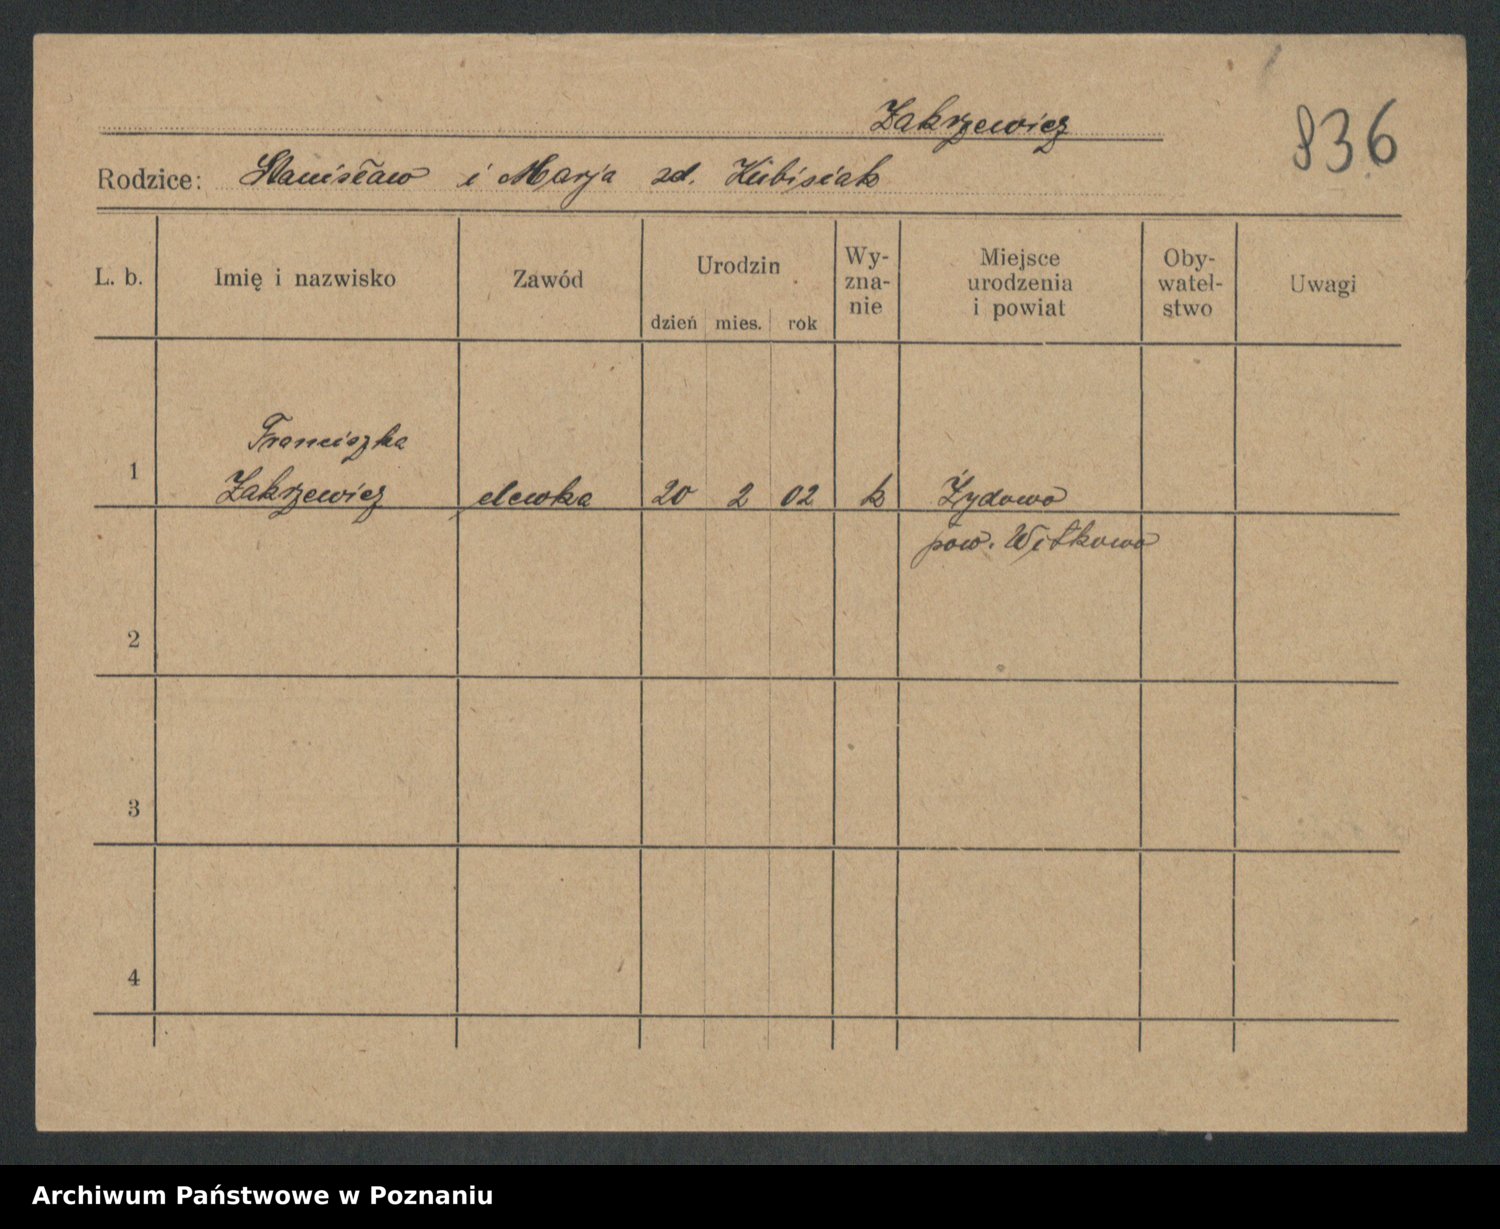 Zakrzewicz
836
Rodzice: Stanisław i Marja zd. Kubisiak
L. b. Imię i nazwisko Zawód Urodzin dzień mies. rok Wy-zna-nie Miejsce urodzenia i powiat Oby-watel-stwo Uwagi
Franciszka
1 Zakrzewicz elewka 20 2 02 k Żydowo
pow. Witkowo
2
3
4
Archiwum Państwowe w Poznaniu